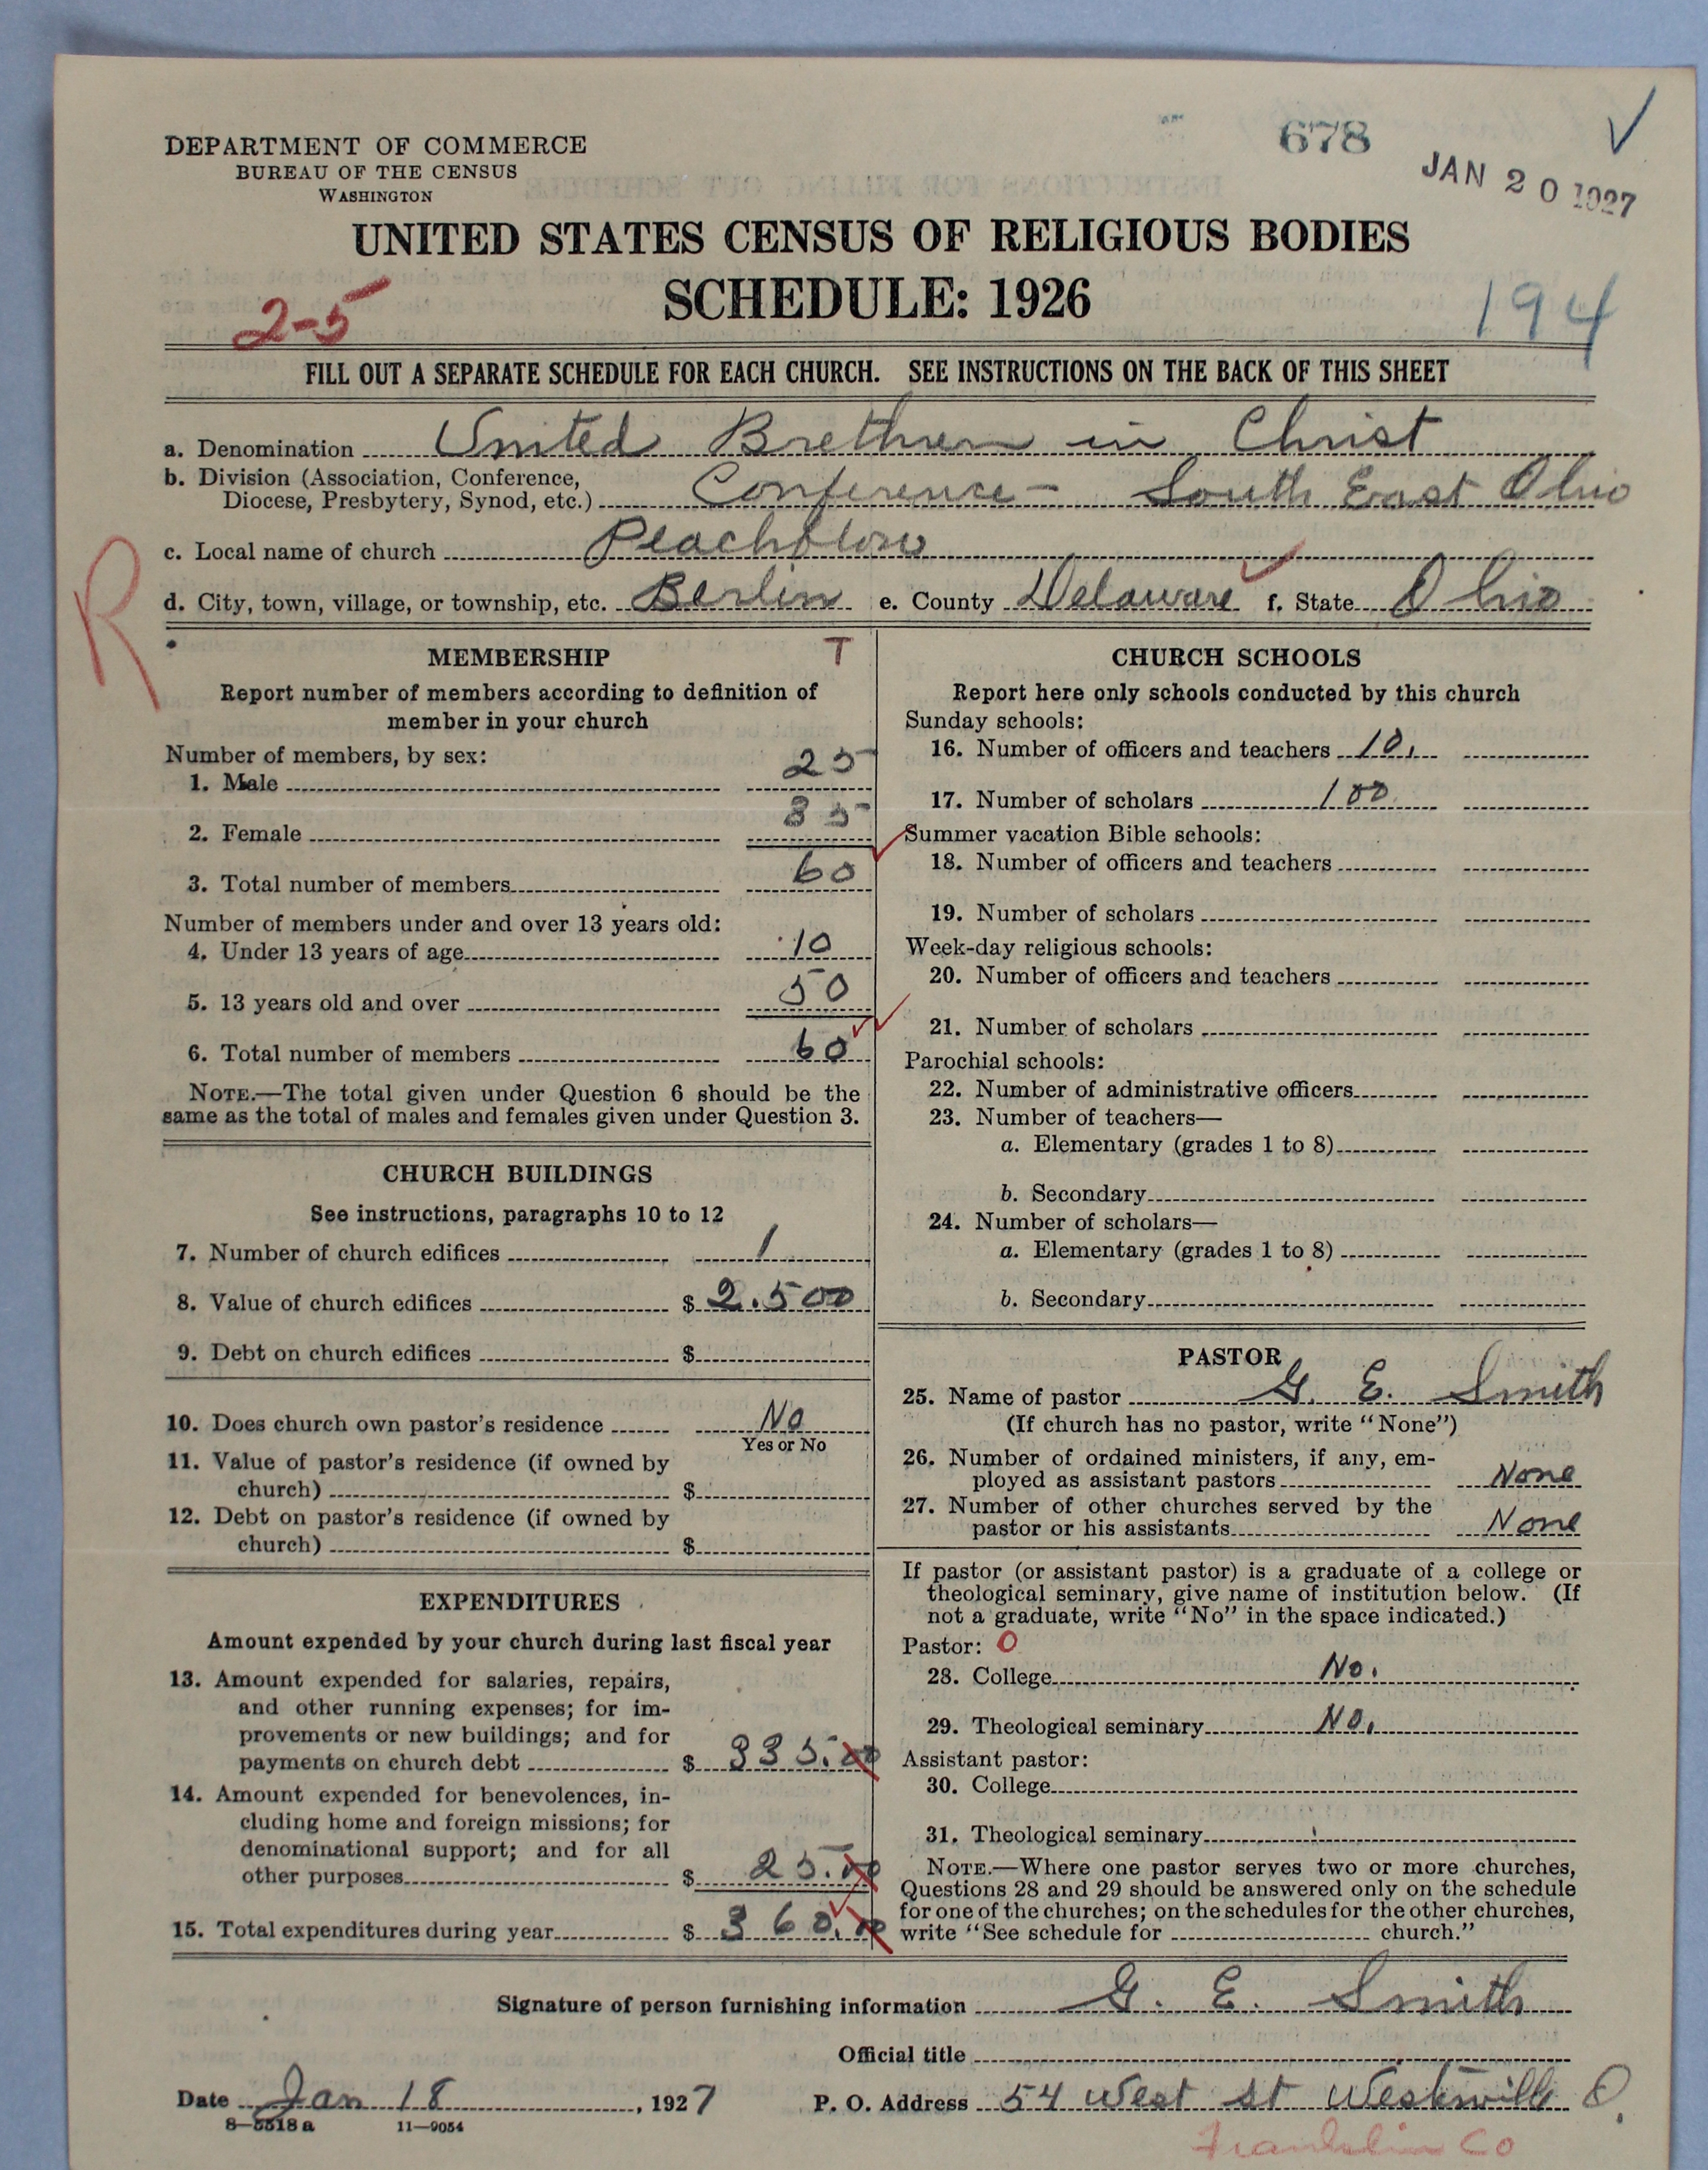 678
JAN 20 1927
DEPARTMENT OF COMMERCE
BUREAU OF THE CENSUS
WASHINGTON
UNITED STATES CENSUS OF RELIGIOUS BODIES
SCHEDULE: 1926
2-5
194
FILL OUT A SEPARATE SCHEDULE FOR EACH CHURCH. SEE INSTRUCTIONS ON THE BACK OF THIS SHEET
a. Denomination United Brethren in Christ
b. Division (Association, Conference,
Diocese, Presbytery, Synod, etc.) Conference - South East Ohio
c. Local name of church Peachblow
d. City, town, village, or township, etc. Berlin e. County Delaware f. State Ohio
R
MEMBERSHIP T
Report number of members according to definition of
member in your church
Number of members, by sex:
1. Male 25
2. Female 35
3. Total number of members 60
Number of members under and over 13 years old:
4. Under 13 years of age 10
5. 13 years old and over 50
6. Total number of members 60
NOTE.—The total given under Question 6 should be the
same as the total of males and females given under Question 3.
CHURCH BUILDINGS
See instructions, paragraphs 10 to 12
7. Number of church edifices 1
8. Value of church edifices $ 2.500
9. Debt on church edifices $
10. Does church own pastor's residence No
Yes or No
11. Value of pastor's residence (if owned by
church) $
12. Debt on pastor's residence (if owned by
church) $
EXPENDITURES
Amount expended by your church during last fiscal year
13. Amount expended for salaries, repairs,
and other running expenses; for im-
provements or new buildings; and for
payments on church debt $ 335.00
14. Amount expended for benevolences, in-
cluding home and foreign missions; for
denominational support; and for all
other purposes $ 25.00
15. Total expenditures during year $ 360.00
CHURCH SCHOOLS
Report here only schools conducted by this church
Sunday schools:
16. Number of officers and teachers 10.
17. Number of scholars 100
Summer vacation Bible schools:
18. Number of officers and teachers
19. Number of scholars
Week-day religious schools:
20. Number of officers and teachers
21. Number of scholars
Parochial schools:
22. Number of administrative officers
23. Number of teachers—
a. Elementary (grades 1 to 8)
b. Secondary
24. Number of scholars—
a. Elementary (grades 1 to 8)
b. Secondary
PASTOR
25. Name of pastor G. E. Smith
(If church has no pastor, write "None")
26. Number of ordained ministers, if any, em-
ployed as assistant pastors None
27. Number of other churches served by the
pastor or his assistants None
If pastor (or assistant pastor) is a graduate of a college or
theological seminary, give name of institution below. (If
not a graduate, write "No" in the space indicated.)
Pastor: O
28. College No.
29. Theological seminary No.
Assistant pastor:
30. College
31. Theological seminary
NOTE.—Where one pastor serves two or more churches,
Questions 28 and 29 should be answered only on the schedule
for one of the churches; on the schedules for the other churches,
write "See schedule for church."
Signature of person furnishing information G. E. Smith
Official title
Date Jan 18, 1927 P. O. Address 54 West st Westerville O.
8—5518 a 11—9054
Franklin Co